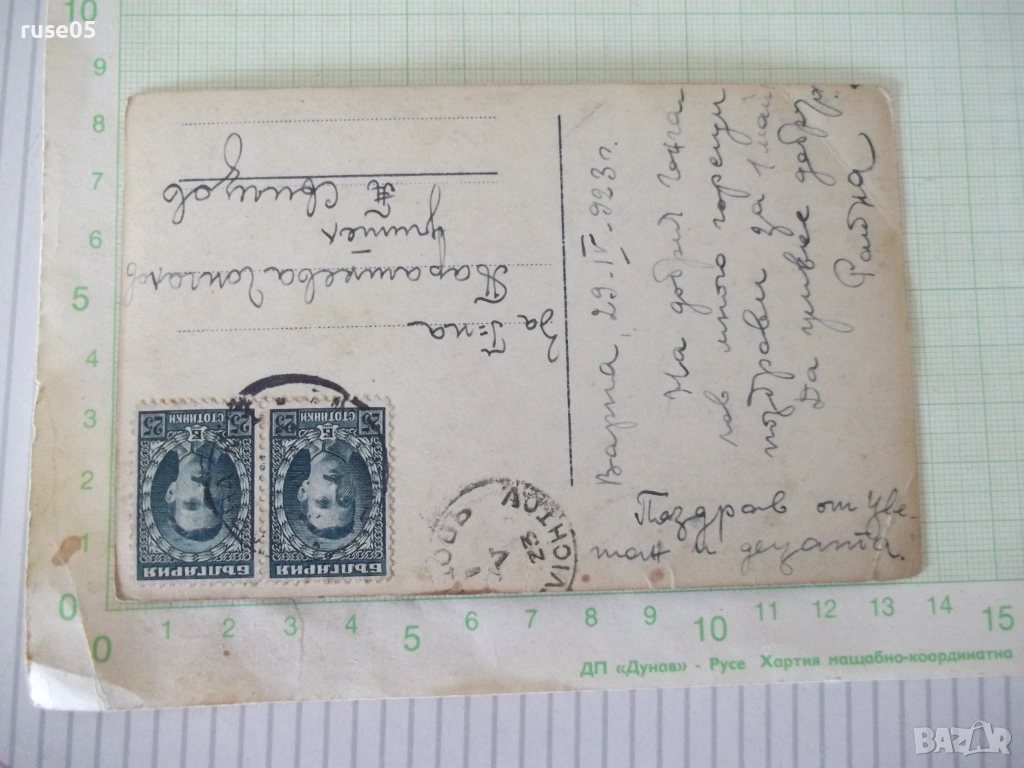 ruse05
Варна, 29-IV-923 г.
На добрия Гонга
лов много горещи
поздрави за 1 май
Да живее добър.
Райна
Поздрав от Цве-
тан и децата.
За Г-на
Парашкева Гонгалов
учител
Свищов
БЪЛГАРИЯ
25 СТОТИНКИ 25
БЪЛГАРИЯ
25 СТОТИНКИ 25
23
10
9
8
7
6
5
4
3
2
1
0
0 1 2 3 4 5 6 7 8 9 10 11 12 13 14 15
ДП «Дунав» - Русе Хартия мащабно-координатна
BAZAR